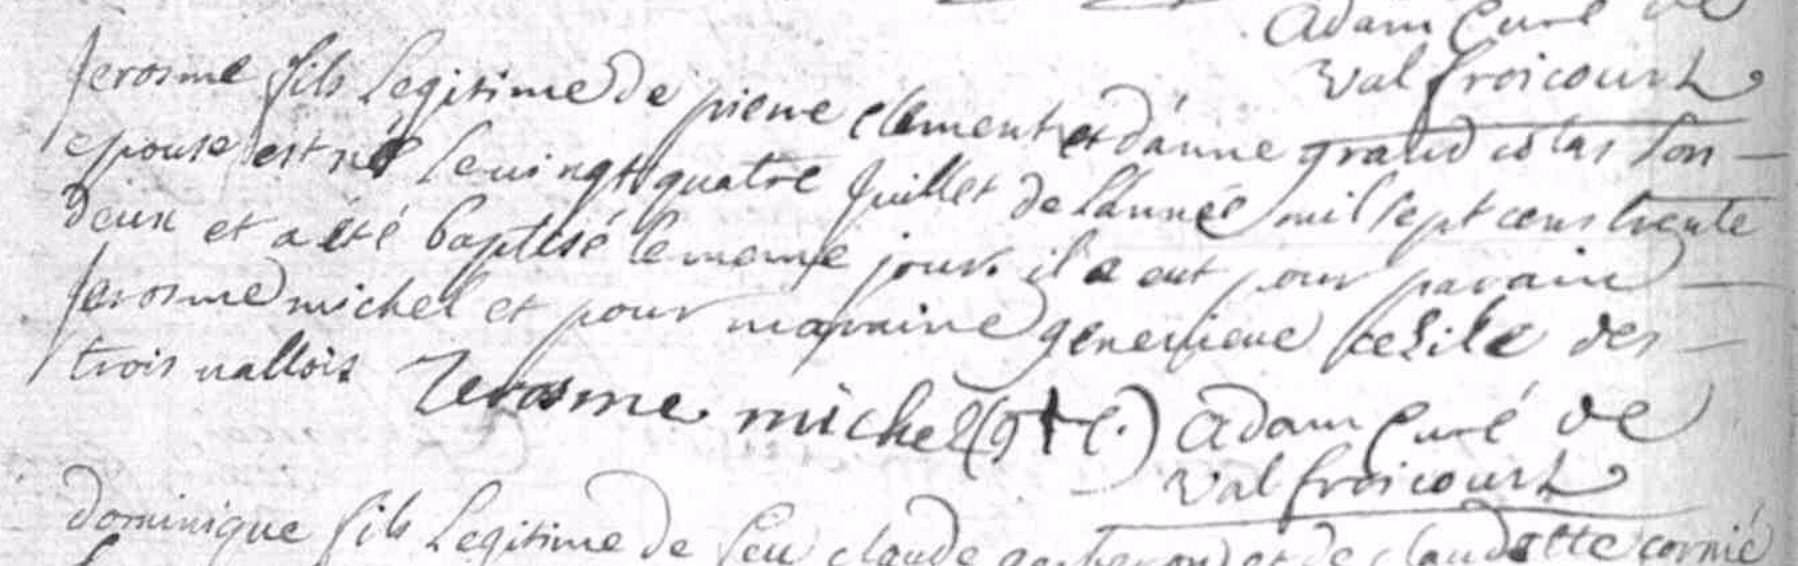 Adam Curé de
Valfroicourt
Jerosme fils Legitime de pierre clement et d'anne grand colas son
epouse est né le uingt quatre Juillet de l'année mil sept cens trente
deux et a été baptisé le meme jour. il a eut pour parain
Jerosme michel et pour maraine genevieve cesile des
trois vallois Jerosme michel (g † c.) Adam Curé de
Valfroicourt
dominique fils Legitime de feu claude et de claudette cornié